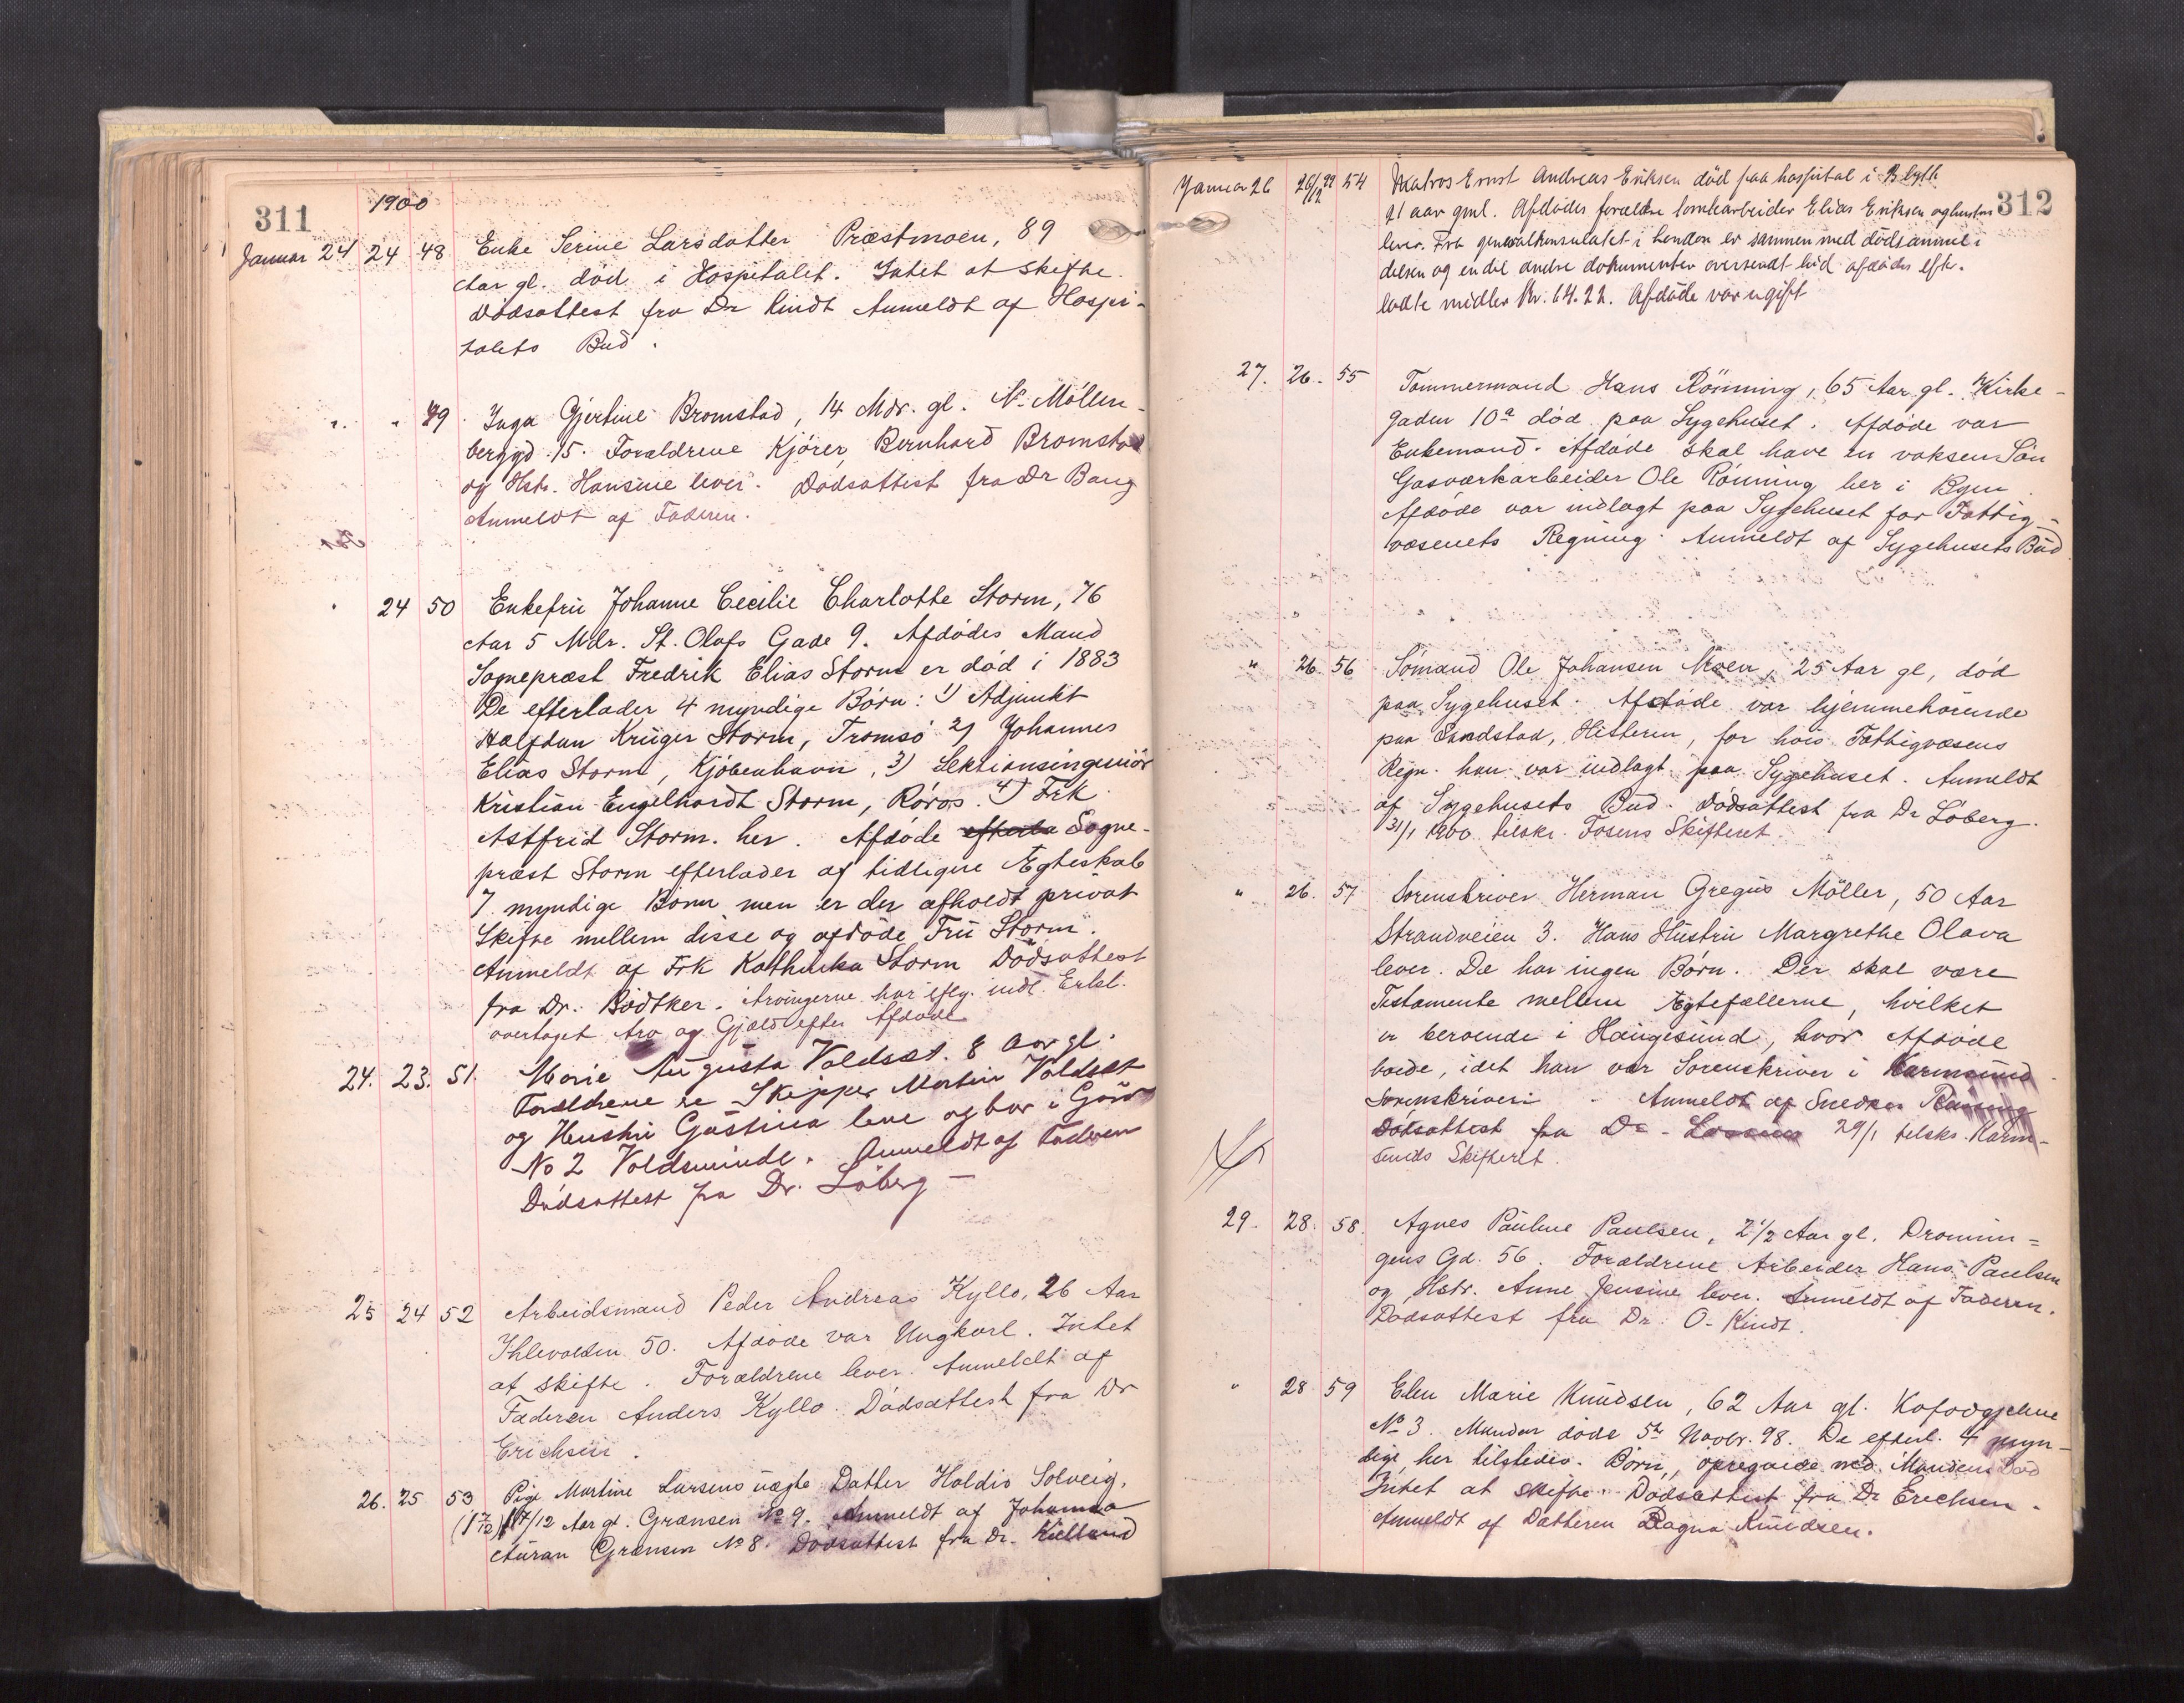 311
1900
Januar 24 24 48 Enke Serine Larsdatter Præstmoen, 89
Aar gl. död i Hospitalet. Intet at skifte.
Dödsattest fra Dr Kindt Anmeldt af Hospi-
talets Bud.
" " 49 Inga Gjertine Bromstad, 14 Mdr. gl. No Möllen-
berggd. 15. Forældrene Kjörer Bernhard Bromstad
og Hstr. Hansine lever. Dödsattest fra Dr Bang
Anmeldt af Faderen.
" 24 50 Enkefru Johanne Cecilie Charlotte Storm, 76
Aar 5 Mdr. St. Olafs Gade 9. Afdödes Mand
Sognepræst Fredrik Elias Storm er död i 1883
De efterlader 4 myndige Börn: 1) Adjunkt
Halfdan Krüger Storm, Tromsö 2) Johannes
Elias Storm, Kjöbenhavn, 3) Sektionsingeniör
Kristian Engelhardt Storm, Röros. 4) Frk.
Astfrid Storm. her. Afdöde efterla Sogne-
præst Storm efterlader af tidligere Ægteskab
7 myndige Börn men er der afholdt privat
Skifte mellem disse og afdöde Fru Storm.
Anmeldt af Frk Kathinka Storm Dödsattest
fra Dr. Bödtker. Arvingerne har iflg. indl. Erkl.
overtaget Arv og Gjæld efter Afdöde
24. 23. 51. Marie Augusta Voldsæt. 8 Aar gl.
Forældrene Skipper Martin Voldsæt
og Hustru Gustava leve og bor i Gård
No 2 Voldsminde. Anmeldt af Faderen
Dödsattest fra Dr. Löberg –
25 24 52 Arbeidsmand Peder Andreas Kyllo, 26 Aar
Ihlevolden 50. Afdöde var Ungkarl. Intet
at skifte. Forældrene lever. Anmeldt af
Faderen Anders Kyllo. Dödsattest fra Dr
Erichsen.
26. 25 53 Pige Martine Larsens uægte Datter Haldis Solveig,
(1 7/12) 17/12 Aar gl. Grænsen No 9. Anmeldt af Johanna
Auran Grænsen No 8. Dödsattest fra Dr. Kielland
312
Januar 26 26/12 99 54 Matros Ernst Andreas Eriksen död paa hospital i Blyth
21 aar gml. Afdödes forældre tomtearbeider Elias Eriksen og hustru
lever. Fra generalkonsulatet i London er sammen med dödsanmel-
delsen og en del andre dokumenter oversendt hid afdödes efter-
ladte midler Kr. 64.22. Afdöde var ugift
27. 26. 55 Tömmermand Hans Rönning, 65 Aar gl. Kirke-
gaden 10a död paa Sygehuset. Afdöde var
Enkemand. Afdöde skal have en voksen Sön
Gasværkarbeider Ole Rönning her i Byen.
Afdöde var indlagt paa Sygehuset for Fattig-
væsenets Regning. Anmeldt af Sygehusets Bud
" 26. 56 Sömand Ole Johansen Moen, 25 Aar gl, död
paa Sygehuset. Afdöde var hjemmehörende
paa Sandstad, Hitteren, for hvis Fattigvæsens
Regn. han var indlagt paa Sygehuset. Anmeldt
af Sygehusets Bud. Dödsattest fra Dr Löberg.
31/1 1900 tilskr. Fosens Skifteret.
" 26. 57 Sorenskriver Herman Gregus Möller, 50 Aar
Strandveien 3. Hans Hustru Margrethe Olava
lever. De har ingen Börn. Der skal være
Testamente mellem Ægtefællerne, hvilket
er beroende i Haugesund, hvor Afdöde
boede, idet han var Sorenskriver i Karmsund
Sorenskriveri. Anmeldt af Snedker
Dödsattest fra Dr. 29/1 tilskr. Karm-
sunds Skifteret.
29. 28. 58. Agnes Pauline Paulsen, 2 1/2 Aar gl. Dronnin-
gens Gd. 56. Forældrene Arbeider Hans Paulsen
og Hstr. Anne Jensine lever. Anmeldt af Faderen.
Dödsattest fra Dr. O. Kindt.
" 28 59 Elen Marie Knudsen, 62 Aar gl. Kofodgjelene
No 3. Manden döde 5te Novbr. 98. De efterl. 4 myn-
dige, her tilstedev. Börn, opregnede ved Mandens Död
Intet at skifte. Dödsattest fra Dr Erichsen.
Anmeldt af Datteren Ragna Knudsen.